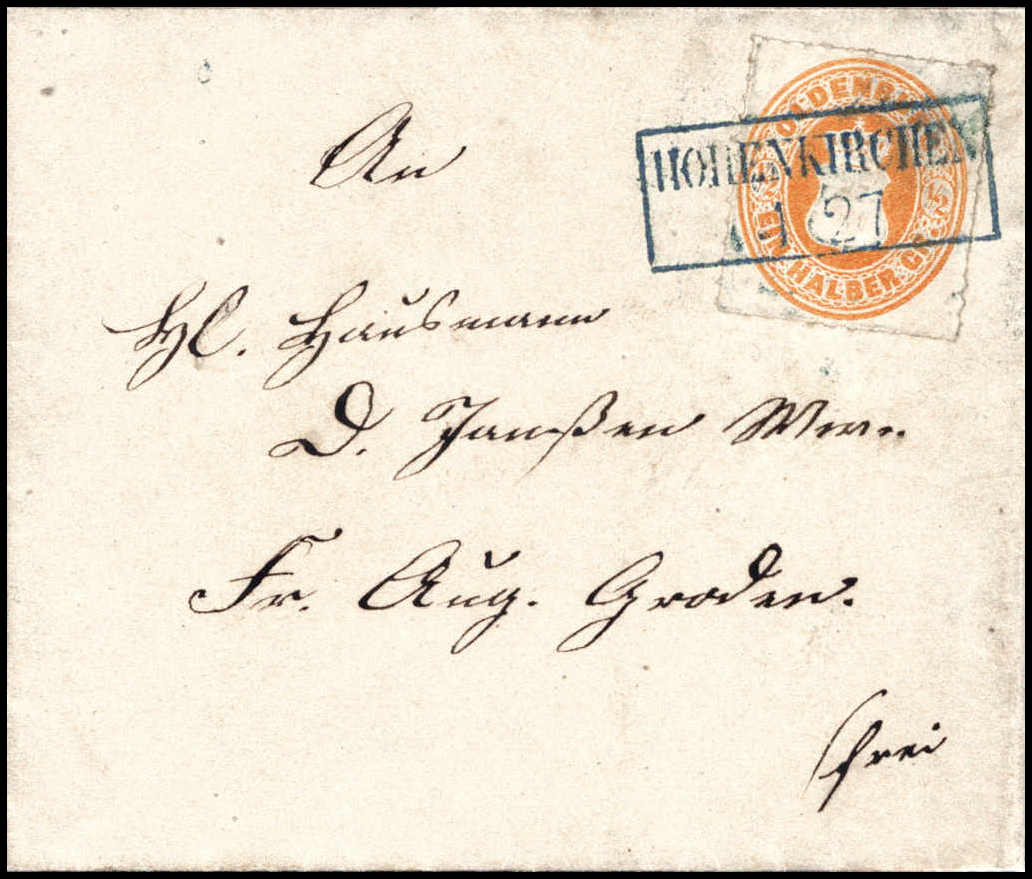 OLDENBURG
EIN HALBER GR.
HOHENKIRCHEN
27
An
Hl. Hausmann
D. Janßen
Fr. Aug. Groden.
frei